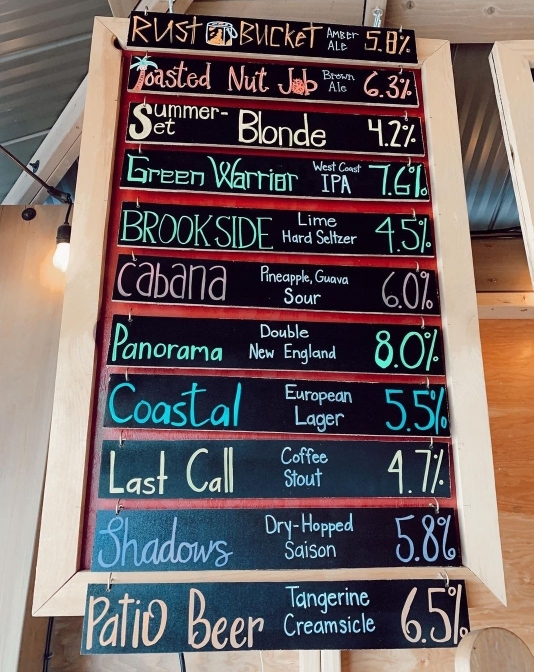 RUST BUCKET AMBER ALE 5.8%
Toasted Nut Job Brown Ale 6.3%
Summer-Set Blonde 4.2%
Green Warrior West Coast IPA 7.6%
BROOKSIDE Lime Hard Seltzer 4.5%
Cabana Pineapple, Guava Sour 6.0%
Panorama Double New England 8.0%
Coastal European Lager 5.5%
Last Call Coffee Stout 4.7%
Shadows Dry-Hopped Saison 5.8%
Patio Beer Tangerine Creamsicle 6.5%